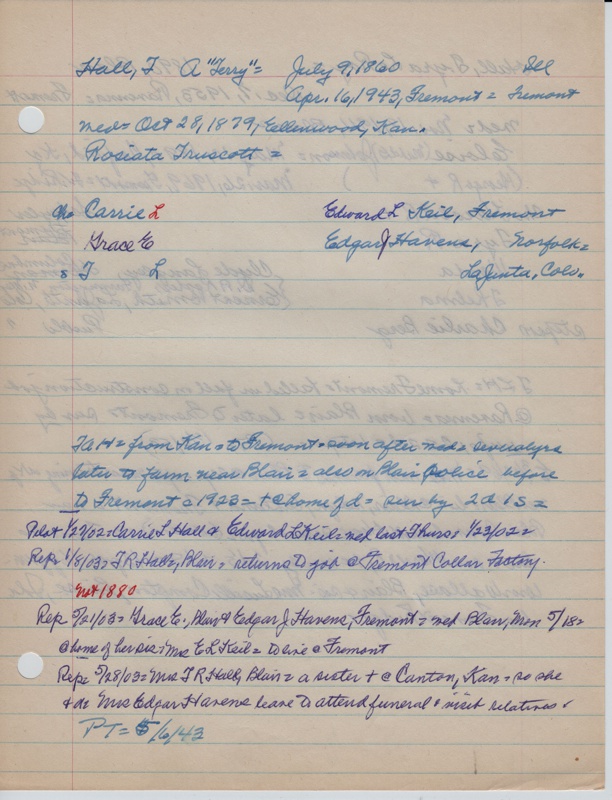 Hall, T A "Terry" = July 9, 1860 Ill
Apr. 16, 1943, Fremont = Fremont
med = Oct 28, 1879, Ellenwood, Kan.
Rosiata Truscott =
ch = Carrie L Edward L Keil, Fremont
Grace E Edgar J Havens, Norfolk =
s T L LaJunta, Colo.
TAH = from Kan = to Fremont = soon after med = several yrs
later to farm near Blair = also on Blair police before
to Fremont c 1923 = + @ home of d = sur by 2d 1s =
Pilot 1/29/02 = Carrie L Hall & Edward L Keil = med last Thurs = 1/23/02 =
Rep = 1/8/03 = T R Hall =, Blair = returns to job @ Fremont Collar Factory.
not 1880
Rep 5/21/03 = Grace E., Blair & Edgar J Havens, Fremont = med Blair, Mon 5/18 =
@ home of her sis = Mrs E L Keil = to live @ Fremont
Rep = 5/28/03 = Mrs T R Hall, Blair = a sister + @ Canton, Kan = so she
+ da Mrs Edgar Havens leave to attend funeral & visit relatives.
PT = 5/6/43